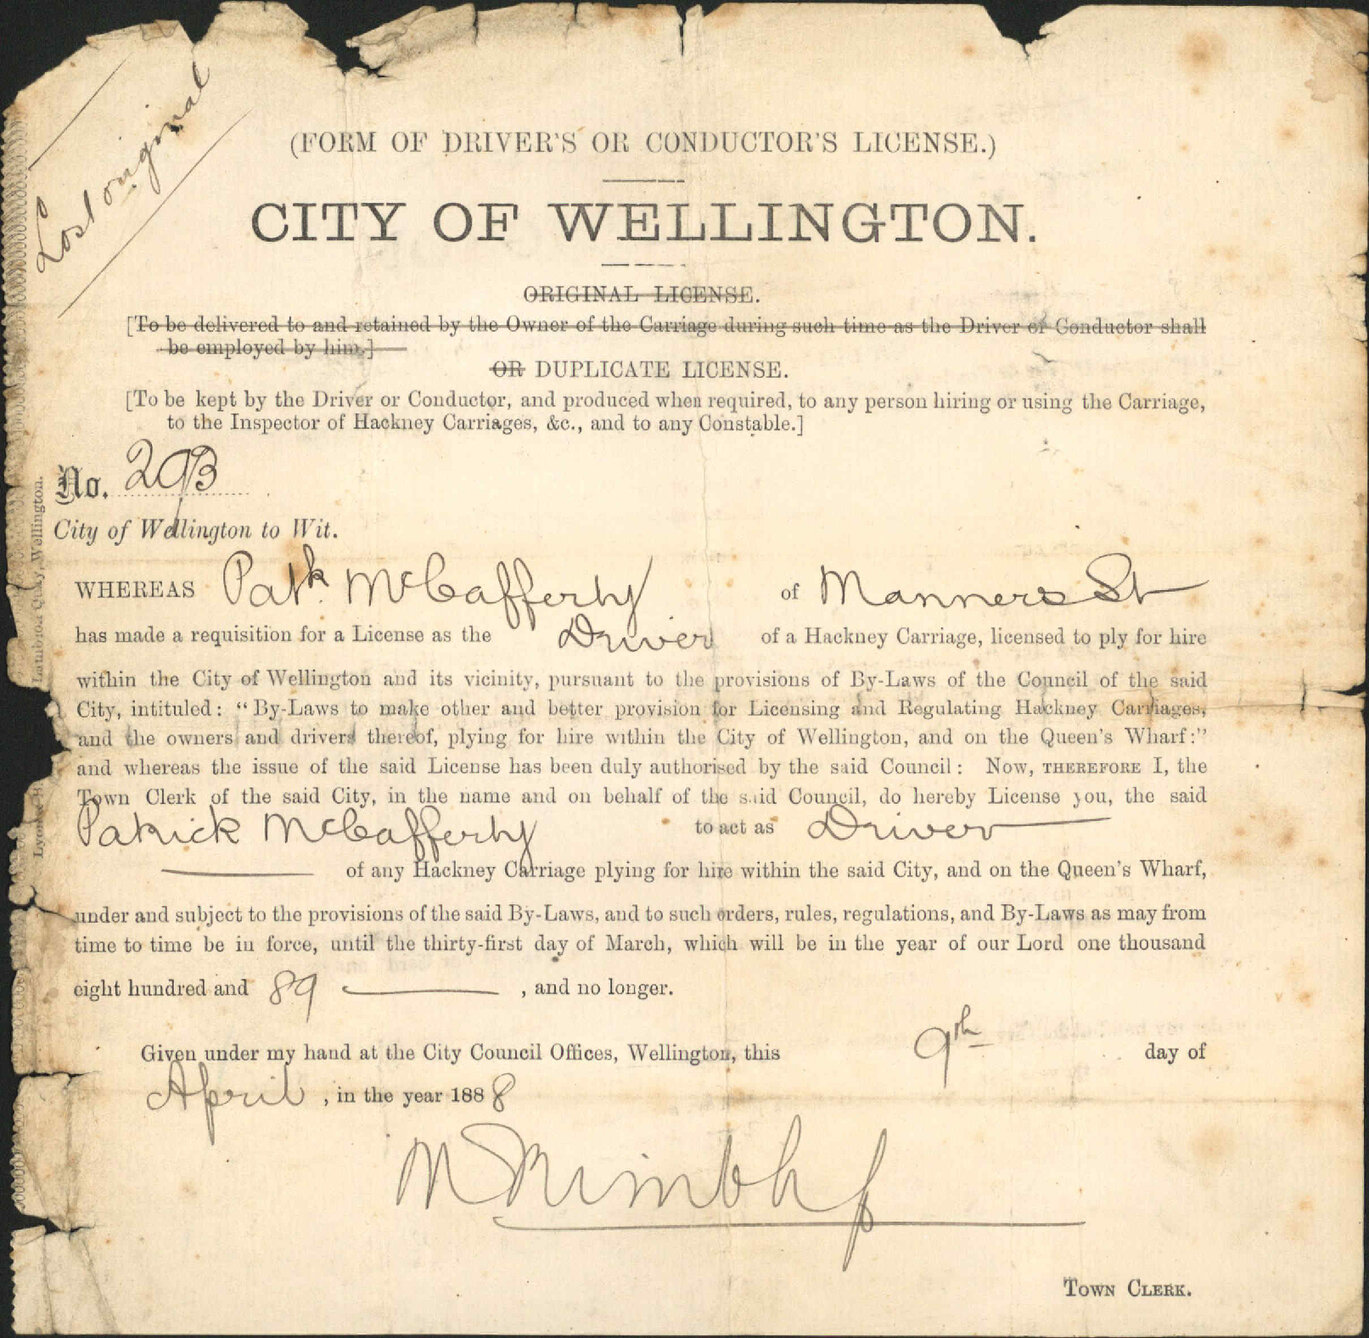 Lost original
(FORM OF DRIVER'S OR CONDUCTOR'S LICENSE.)
CITY OF WELLINGTON.
ORIGINAL LICENSE.
[To be delivered to and retained by the Owner of the Carriage during such time as the Driver or Conductor shall
be employed by him.]
OR DUPLICATE LICENSE.
[To be kept by the Driver or Conductor, and produced when required, to any person hiring or using the Carriage,
to the Inspector of Hackney Carriages, &c., and to any Constable.]
No. 29B
City of Wellington to Wit.
WHEREAS Patk. McCafferty of Manners St
has made a requisition for a License as the Driver of a Hackney Carriage, licensed to ply for hire
within the City of Wellington and its vicinity, pursuant to the provisions of By-Laws of the Council of the said
City, intituled: "By-Laws to make other and better provision for Licensing and Regulating Hackney Carriages,
and the owners and drivers thereof, plying for hire within the City of Wellington, and on the Queen's Wharf:"
and whereas the issue of the said License has been duly authorised by the said Council: Now, THEREFORE I, the
Town Clerk of the said City, in the name and on behalf of the said Council, do hereby License you, the said
Patrick McCafferty to act as Driver
of any Hackney Carriage plying for hire within the said City, and on the Queen's Wharf,
under and subject to the provisions of the said By-Laws, and to such orders, rules, regulations, and By-Laws as may from
time to time be in force, until the thirty-first day of March, which will be in the year of our Lord one thousand
eight hundred and 89 , and no longer.
Given under my hand at the City Council Offices, Wellington, this 9th day of
April , in the year 1888
TOWN CLERK.
Lambton Quay, Wellington.